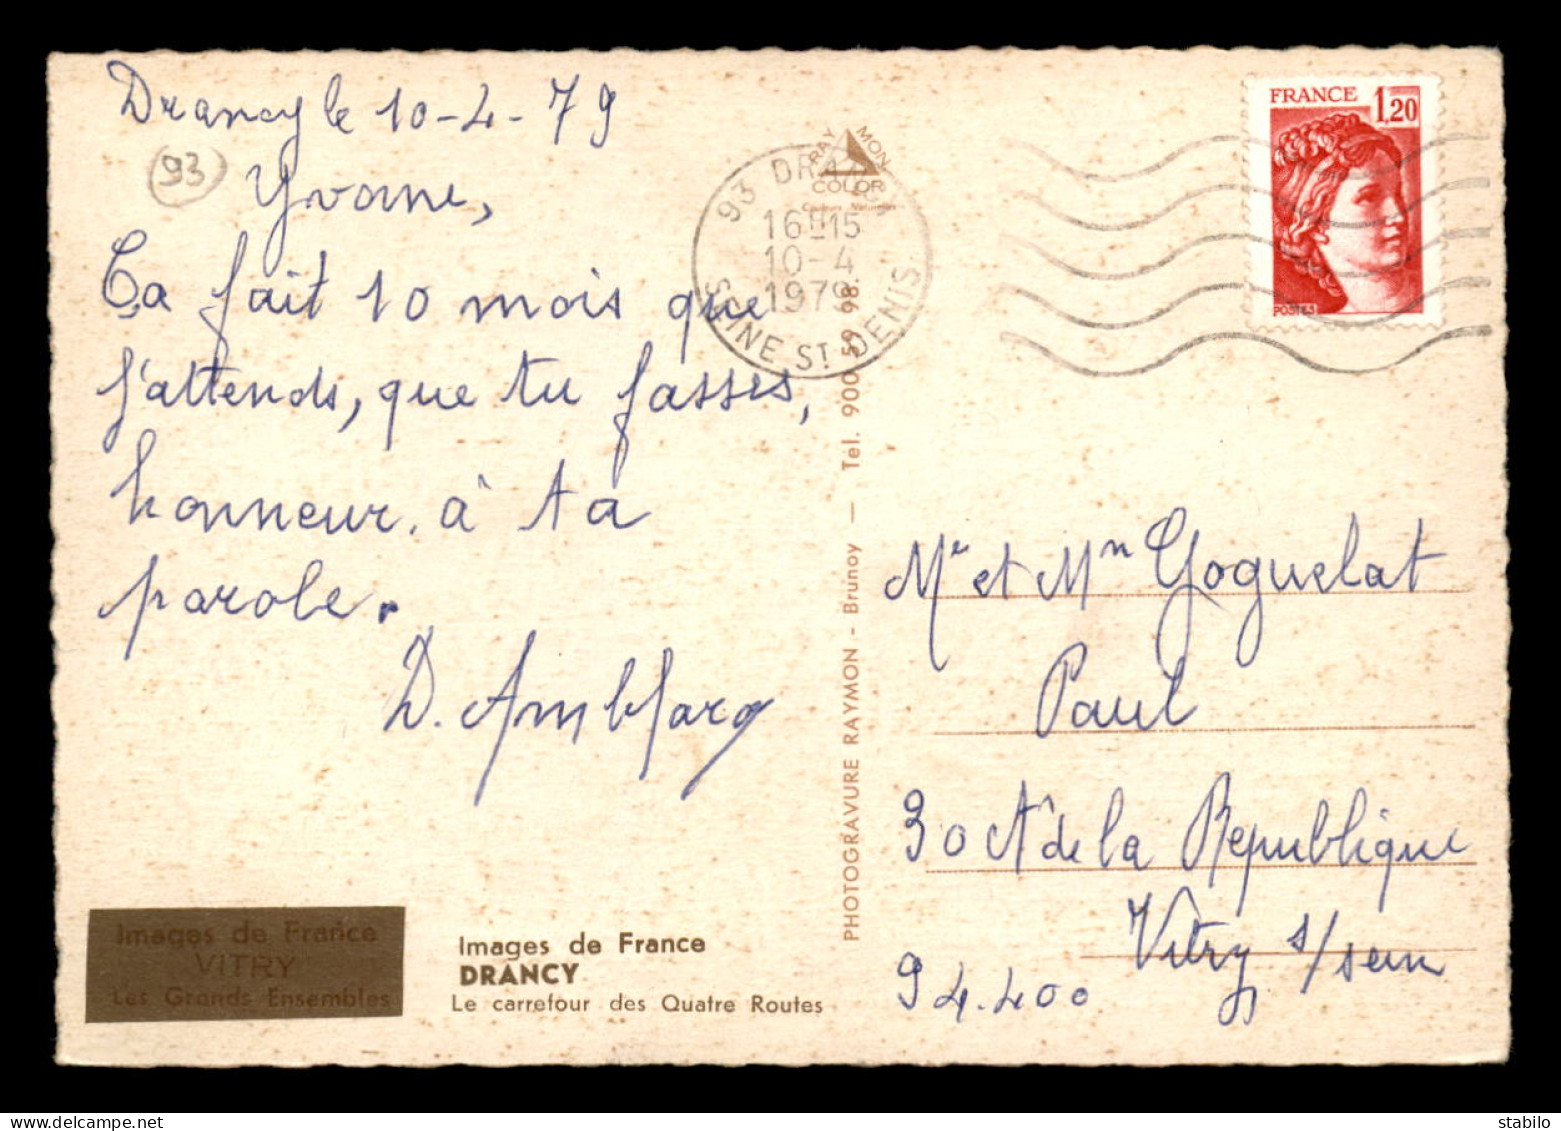 Drancy le 10-4-79
93
Yvonne,
Ça fait 10 mois que
j'attends, que tu fasses,
honneur, à ta
parole.
D. Amblard
Images de France
VITRY
Les Grands Ensembles
Images de France
DRANCY
Le carrefour des Quatre Routes
PHOTOGRAVURE RAYMON - Brunoy — Tel. 900 59 98.
RAYMON
COLOR
93 DRANCY
16H15
10-4
1979
SEINE ST DENIS
FRANCE 1,20
POSTES
Mr et Mm Goguelat
Paul
30 Av de la Republique
Vitry s/sein
94.400
stabilo